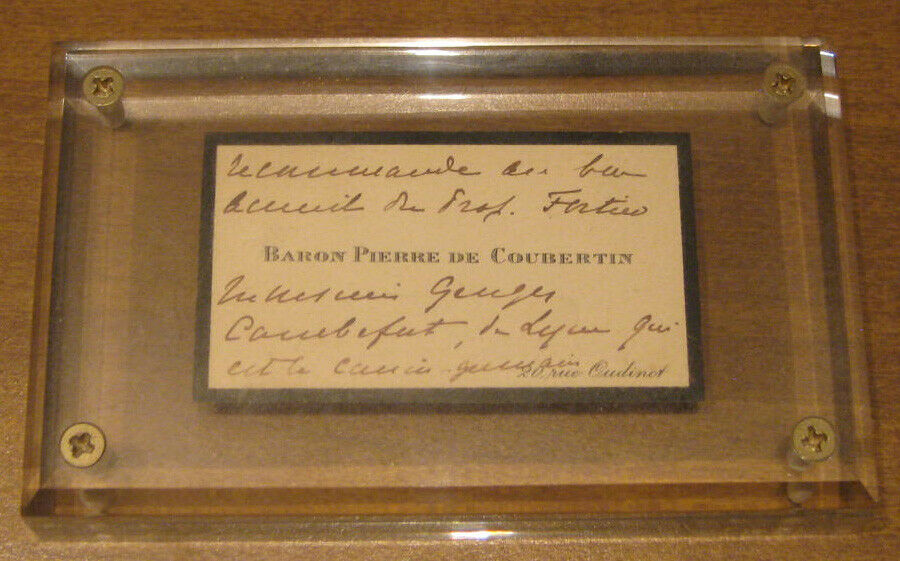 recommande au bon
accueil du Prof. Fortier
BARON PIERRE DE COUBERTIN
monsieur Georges
Combefort, de Lyon qui
est le cousin germain
20, rue Oudinot